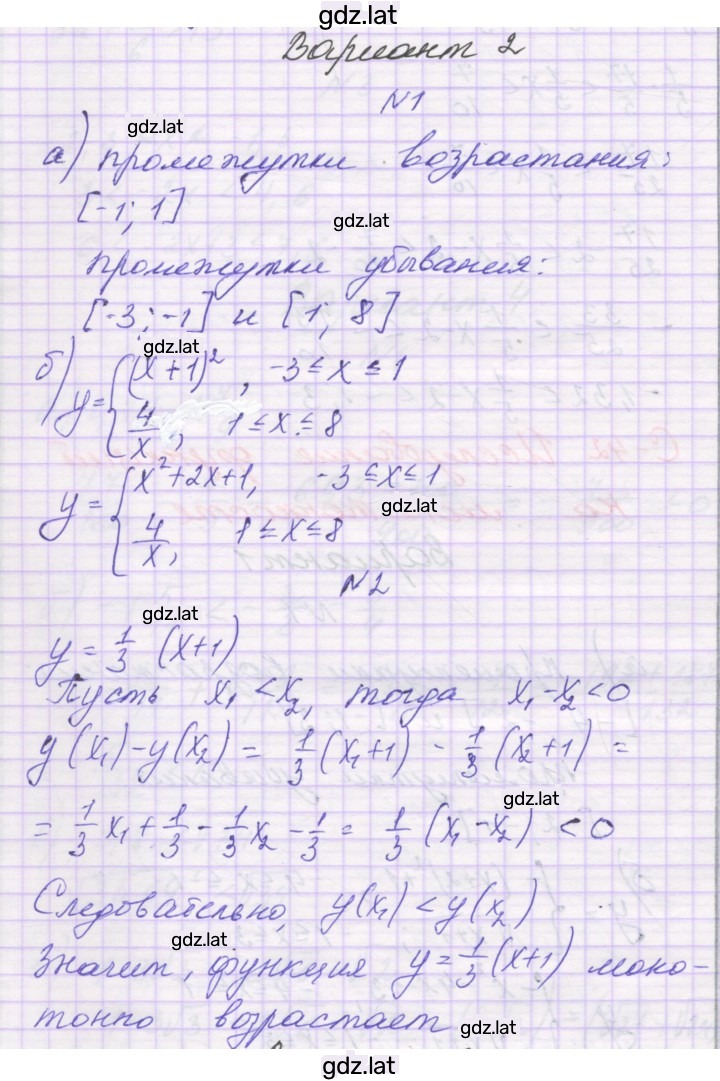 gdz.lat
Вариант 2
№1
gdz.lat
а) промежутки возрастания:
[-1; 1]
gdz.lat
промежутки убывания:
[-3; -1] и [1; 8]
gdz.lat
б) y = { (x+1)², -3 ≤ x ≤ 1
4/x, 1 ≤ x ≤ 8
y = { x²+2x+1, -3 ≤ x ≤ 1
gdz.lat
4/x, 1 ≤ x ≤ 8
№2
gdz.lat
y = 1/3 (x+1)
Пусть x₁ < x₂, тогда x₁-x₂<0
y(x₁)-y(x₂) = 1/3(x₁+1) - 1/3(x₂+1) =
gdz.lat
= 1/3 x₁ + 1/3 - 1/3 x₂ - 1/3 = 1/3 (x₁-x₂) < 0
Следовательно, y(x₁) < y(x₂)
gdz.lat
Значит, функция y = 1/3(x+1) моно-
тонно возрастает
gdz.lat
gdz.lat